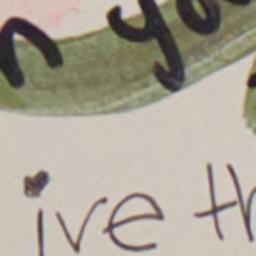 n yo
ive th